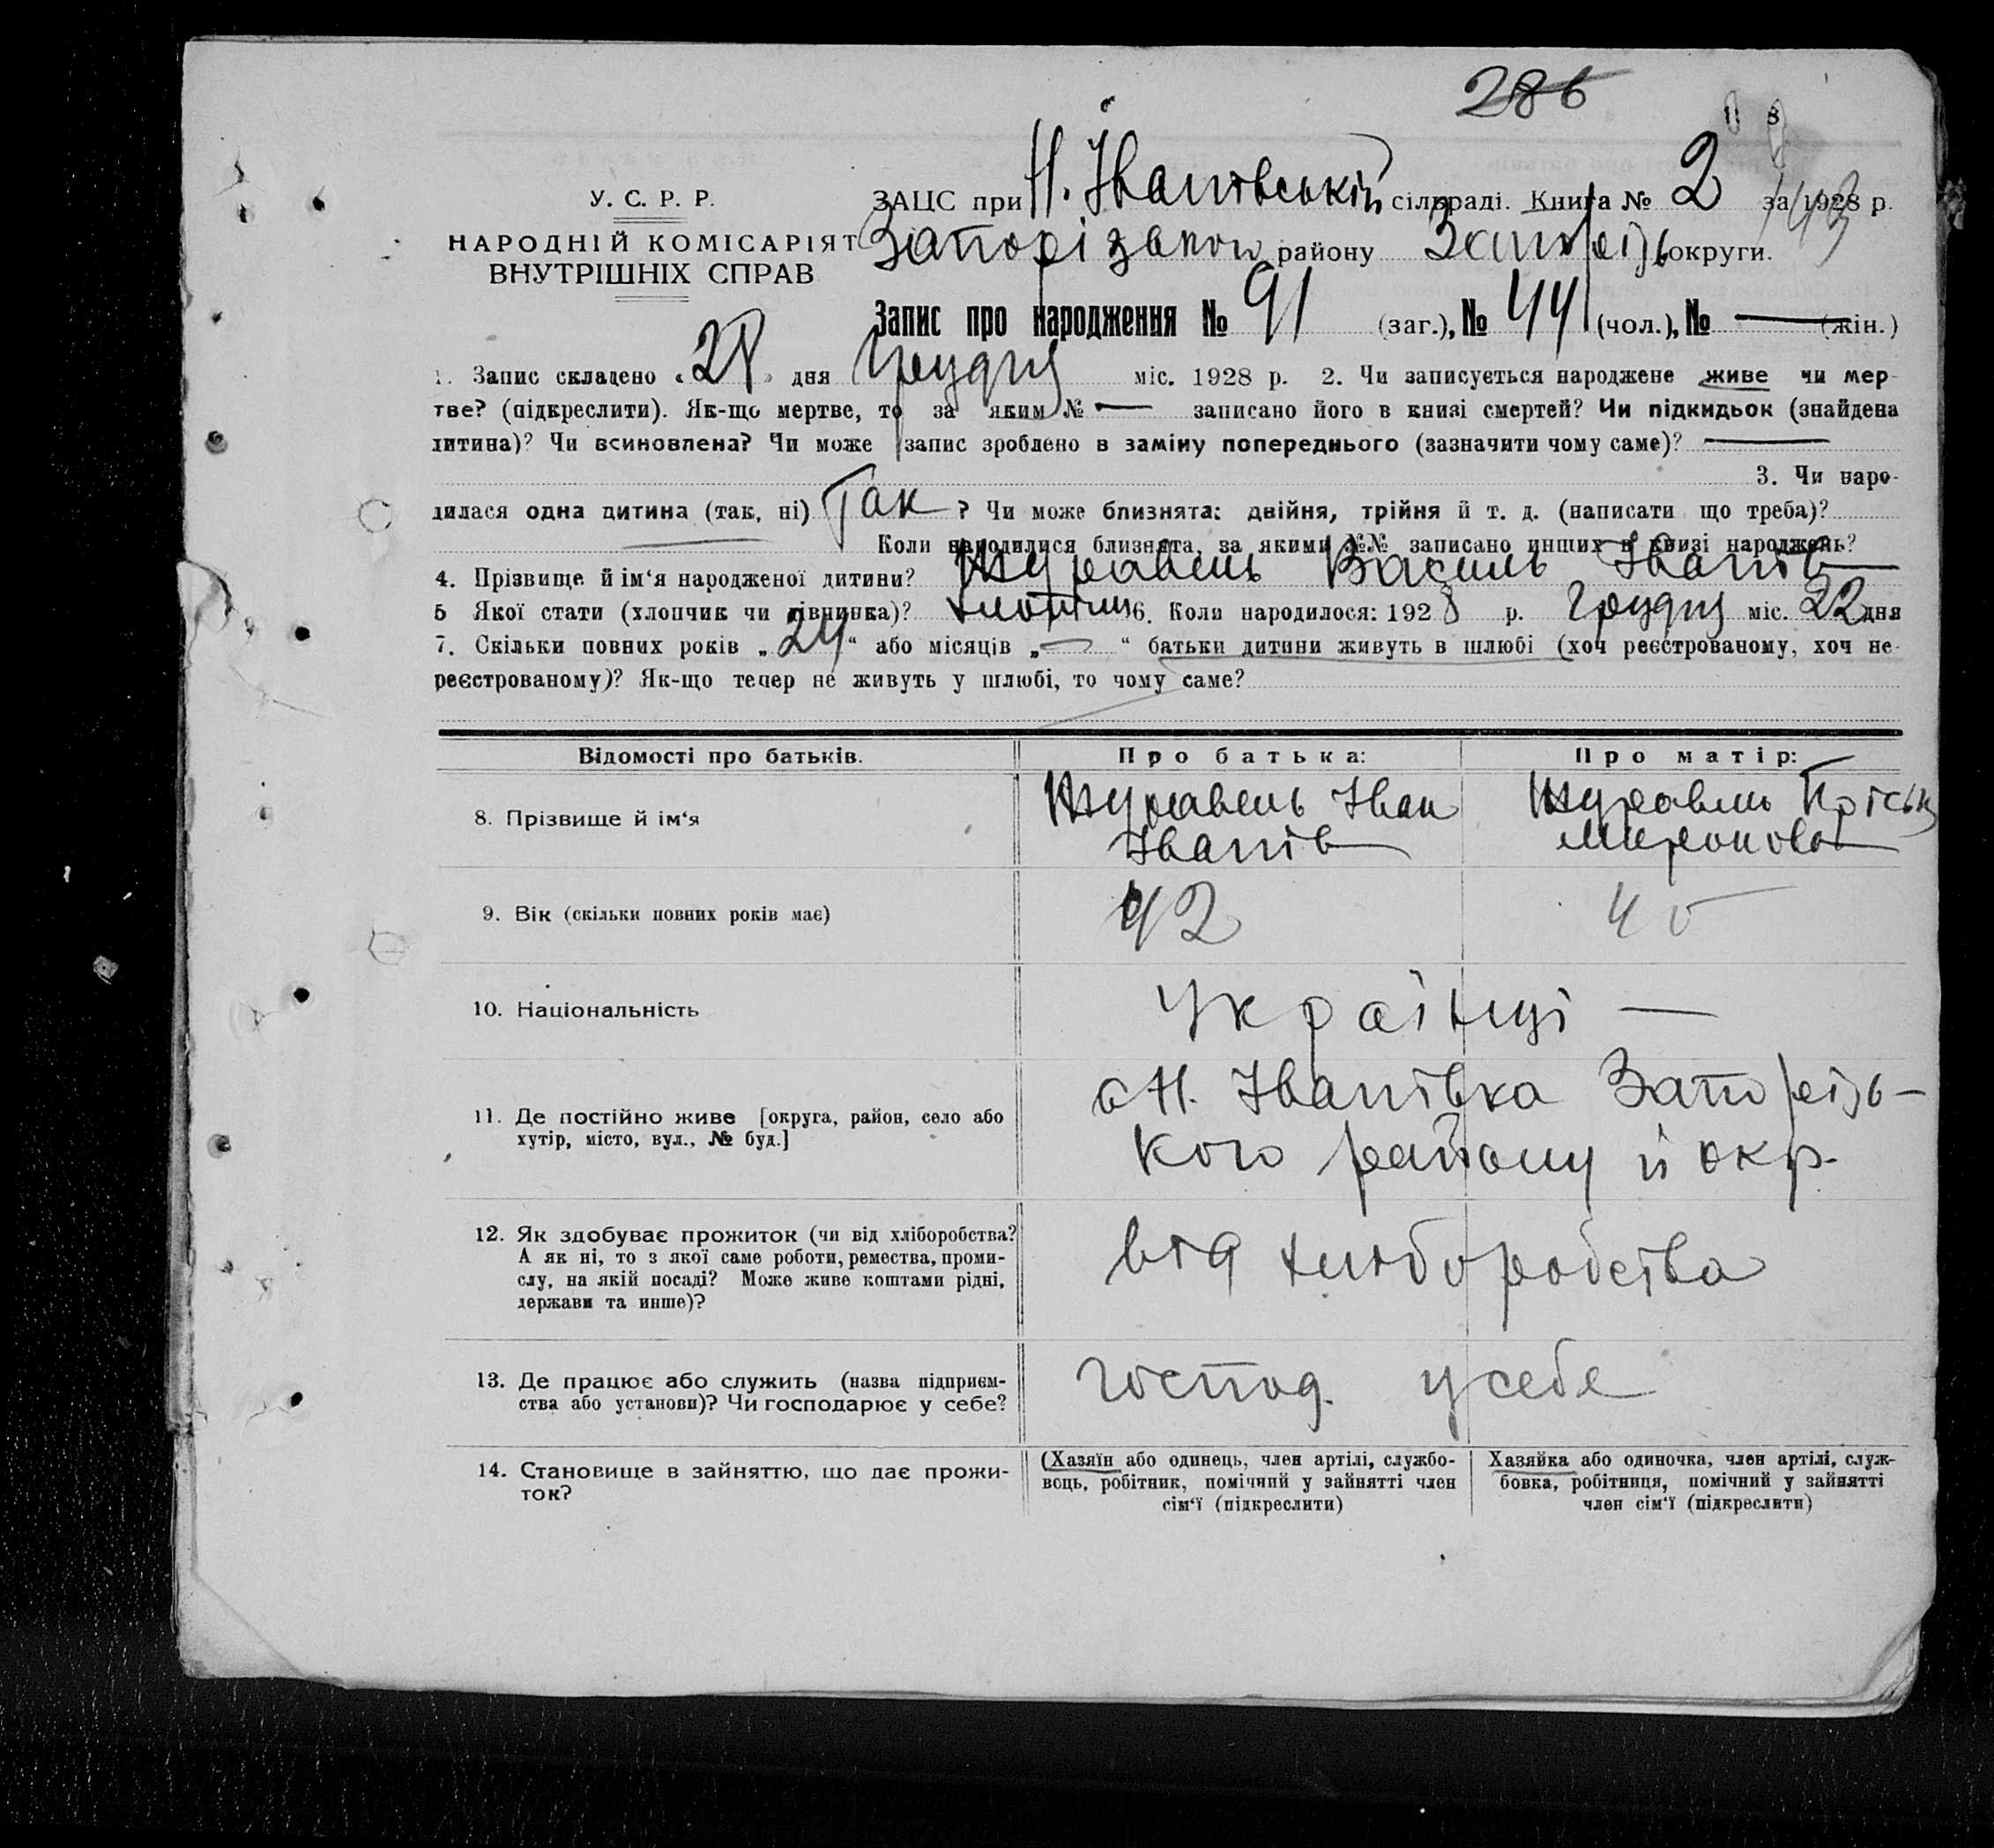 286
У. С. Р. Р.
НАРОДНІЙ КОМІСАРІЯТ
ВНУТРІШНІХ СПРАВ
ЗАЦС при Н. Іванівській сільраді. Книга № 2 за 1928 р.
Запорізького району Запорізь округи.
143
Запис про народження № 91 (заг.), № 44 (чол.), № — (жін.)
1. Запис складено „28“ дня Грудня міс. 1928 р. 2. Чи записується народжене живе чи мер-
тве? (підкреслити). Як-що мертве, то за яким № — записано його в книзі смертей? Чи підкидьок (знайдена
дитина)? Чи всиновлена? Чи може запис зроблено в заміну попереднього (зазначити чому саме)? —
3. Чи наро-
дилася одна дитина (так, ні) Так ? Чи може близнята: двійня, трійня й т. д. (написати що треба)?
Коли народилися близнята, за якими №№ записано инших в книзі народжень?
4. Прізвище й ім‘я народженої дитини? Журавель Василь Іванів
5 Якої стати (хлопчик чи дівчинка)? хлопчик 6. Коли народилося: 1928 р. Грудня міс. 22 дня
7. Скільки повних років „24“ або місяців „—“ батьки дитини живуть в шлюбі (хоч реєстрованому, хоч не-
реєстрованому)? Як-що тепер не живуть у шлюбі, то чому саме?
Відомості про батьків. Про батька: Про матір:
8. Прізвище й ім‘я
Журавель Іван
Іванів
Журавель Пріська
Миронова
9. Вік (скільки повних років має) 42 45
10. Національність Українці —
11. Де постійно живе [округа, район, село або
хутір, місто, вул., № буд.]
с Н. Іванівка Запорізь-
кого району й окр.
12. Як здобуває прожиток (чи від хліборобства?
А як ні, то з якої саме роботи, ремества, проми-
слу, на якій посаді? Може живе коштами рідні,
держави та инше)?
від хліборобства
13. Де працює або служить (назва підприєм-
ства або установи)? Чи господарює у себе?
господ. у себе
14. Становище в зайняттю, що дає прожи-
ток?
(Хазяїн або одинець, член артілі, службо-
вець, робітник, помічний у зайнятті член
сім‘ї (підкреслити)
Хазяйка або одиночка, член артілі, служ-
бовка, робітниця, помічний у зайнятті
член сім‘ї (підкреслити)